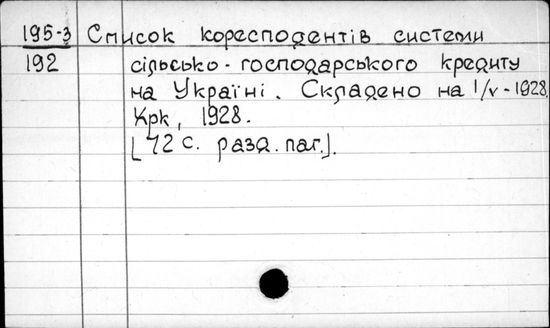 195-3 Список кореспондентів системи
192 сільсько-господарського кредиту
на Україні. Складено на 1/V-1928.
Крк, 1928.
[72 с. разд. паг.].